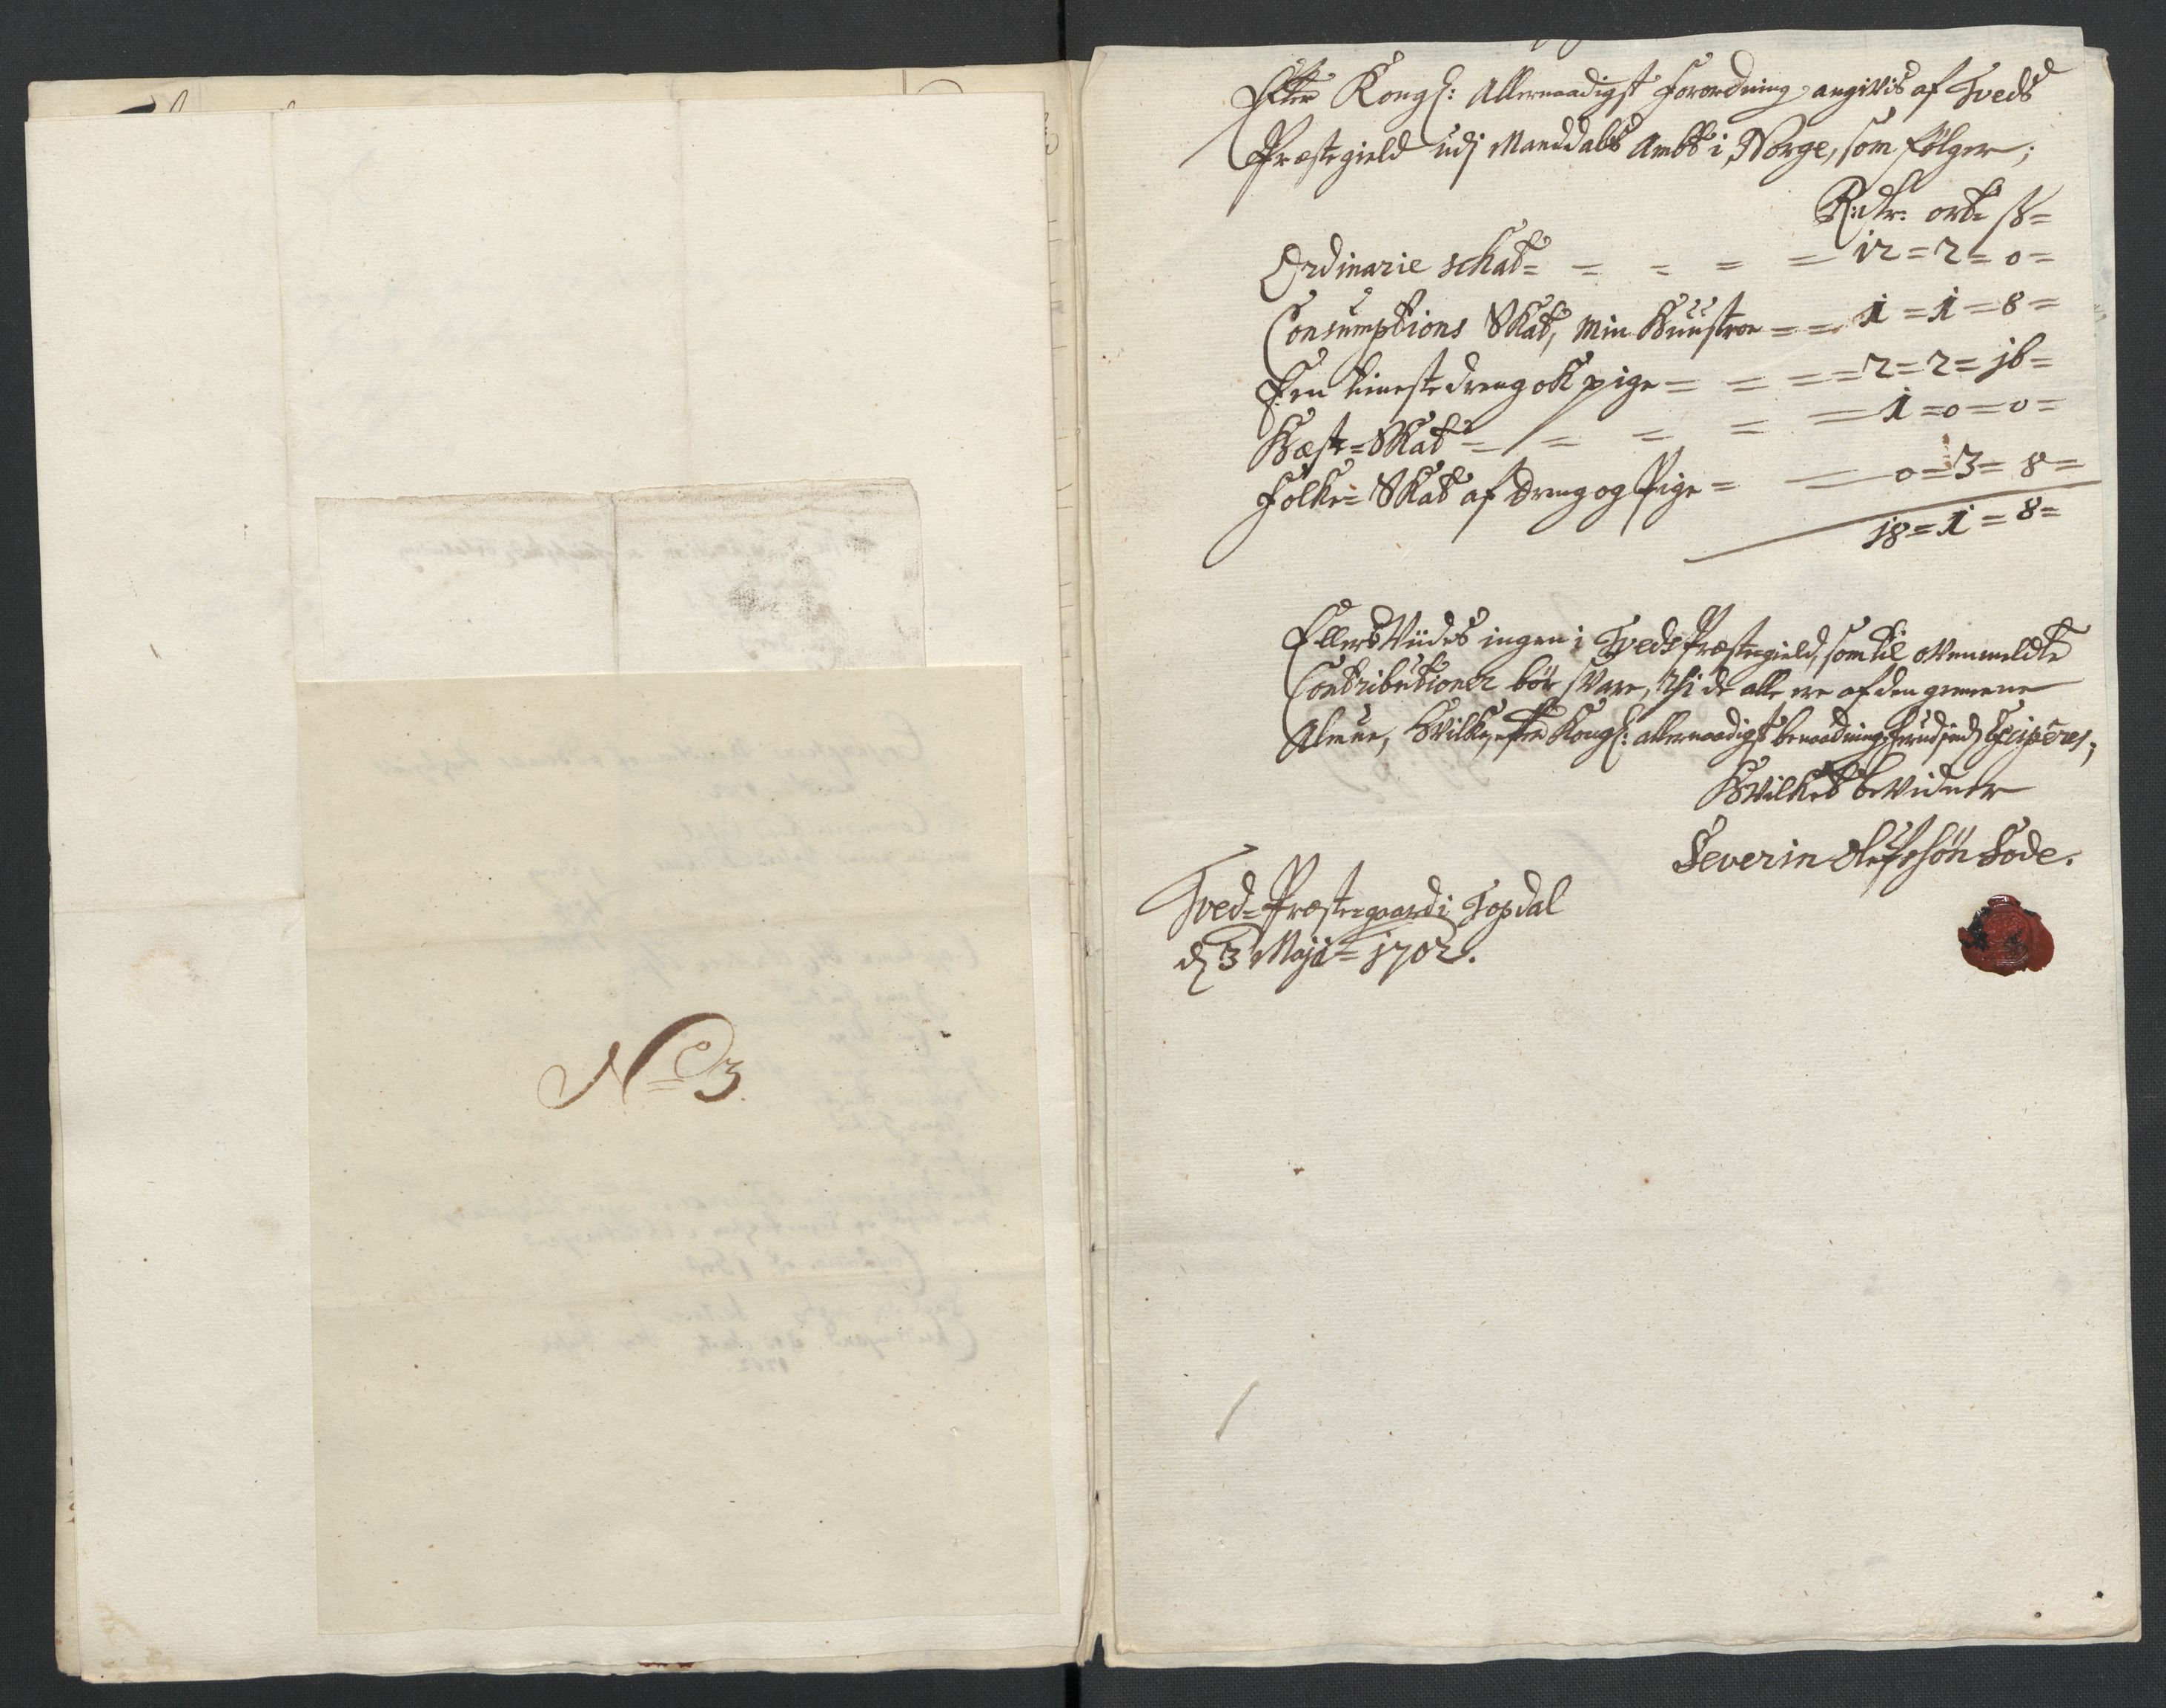 No 3.
Efter Kongl: Allernaadigst Forordning angivis af Tveds
Præstegield udj Manddals Ambt i Norge, som følger;
R:dlr: ort: ss=
Ordinarie schat= = = = = 12=2=0=
Consumptions Skat, min Huustroe = = 1=1=8=
Een tienestedreng ok pige= = = = 2=2=16=
Hæste=Skat = = = = = 1=0=0=
Folke=Skat af dreng og Pige = = 0=3=8=
18=1=8=
Ellers Viides ingen i Tveds Præstegield, som til ovenmeldte
Contributioner bör svare, thi de alle ere af den gemeene
Almue, Hvilke, efter Kongl: allernaadigst benaadning
Hvilket bevidner
Severin Olufsøn Gode.
Tved=Præstegaard i Topdal
d 3 Maji= 1702.